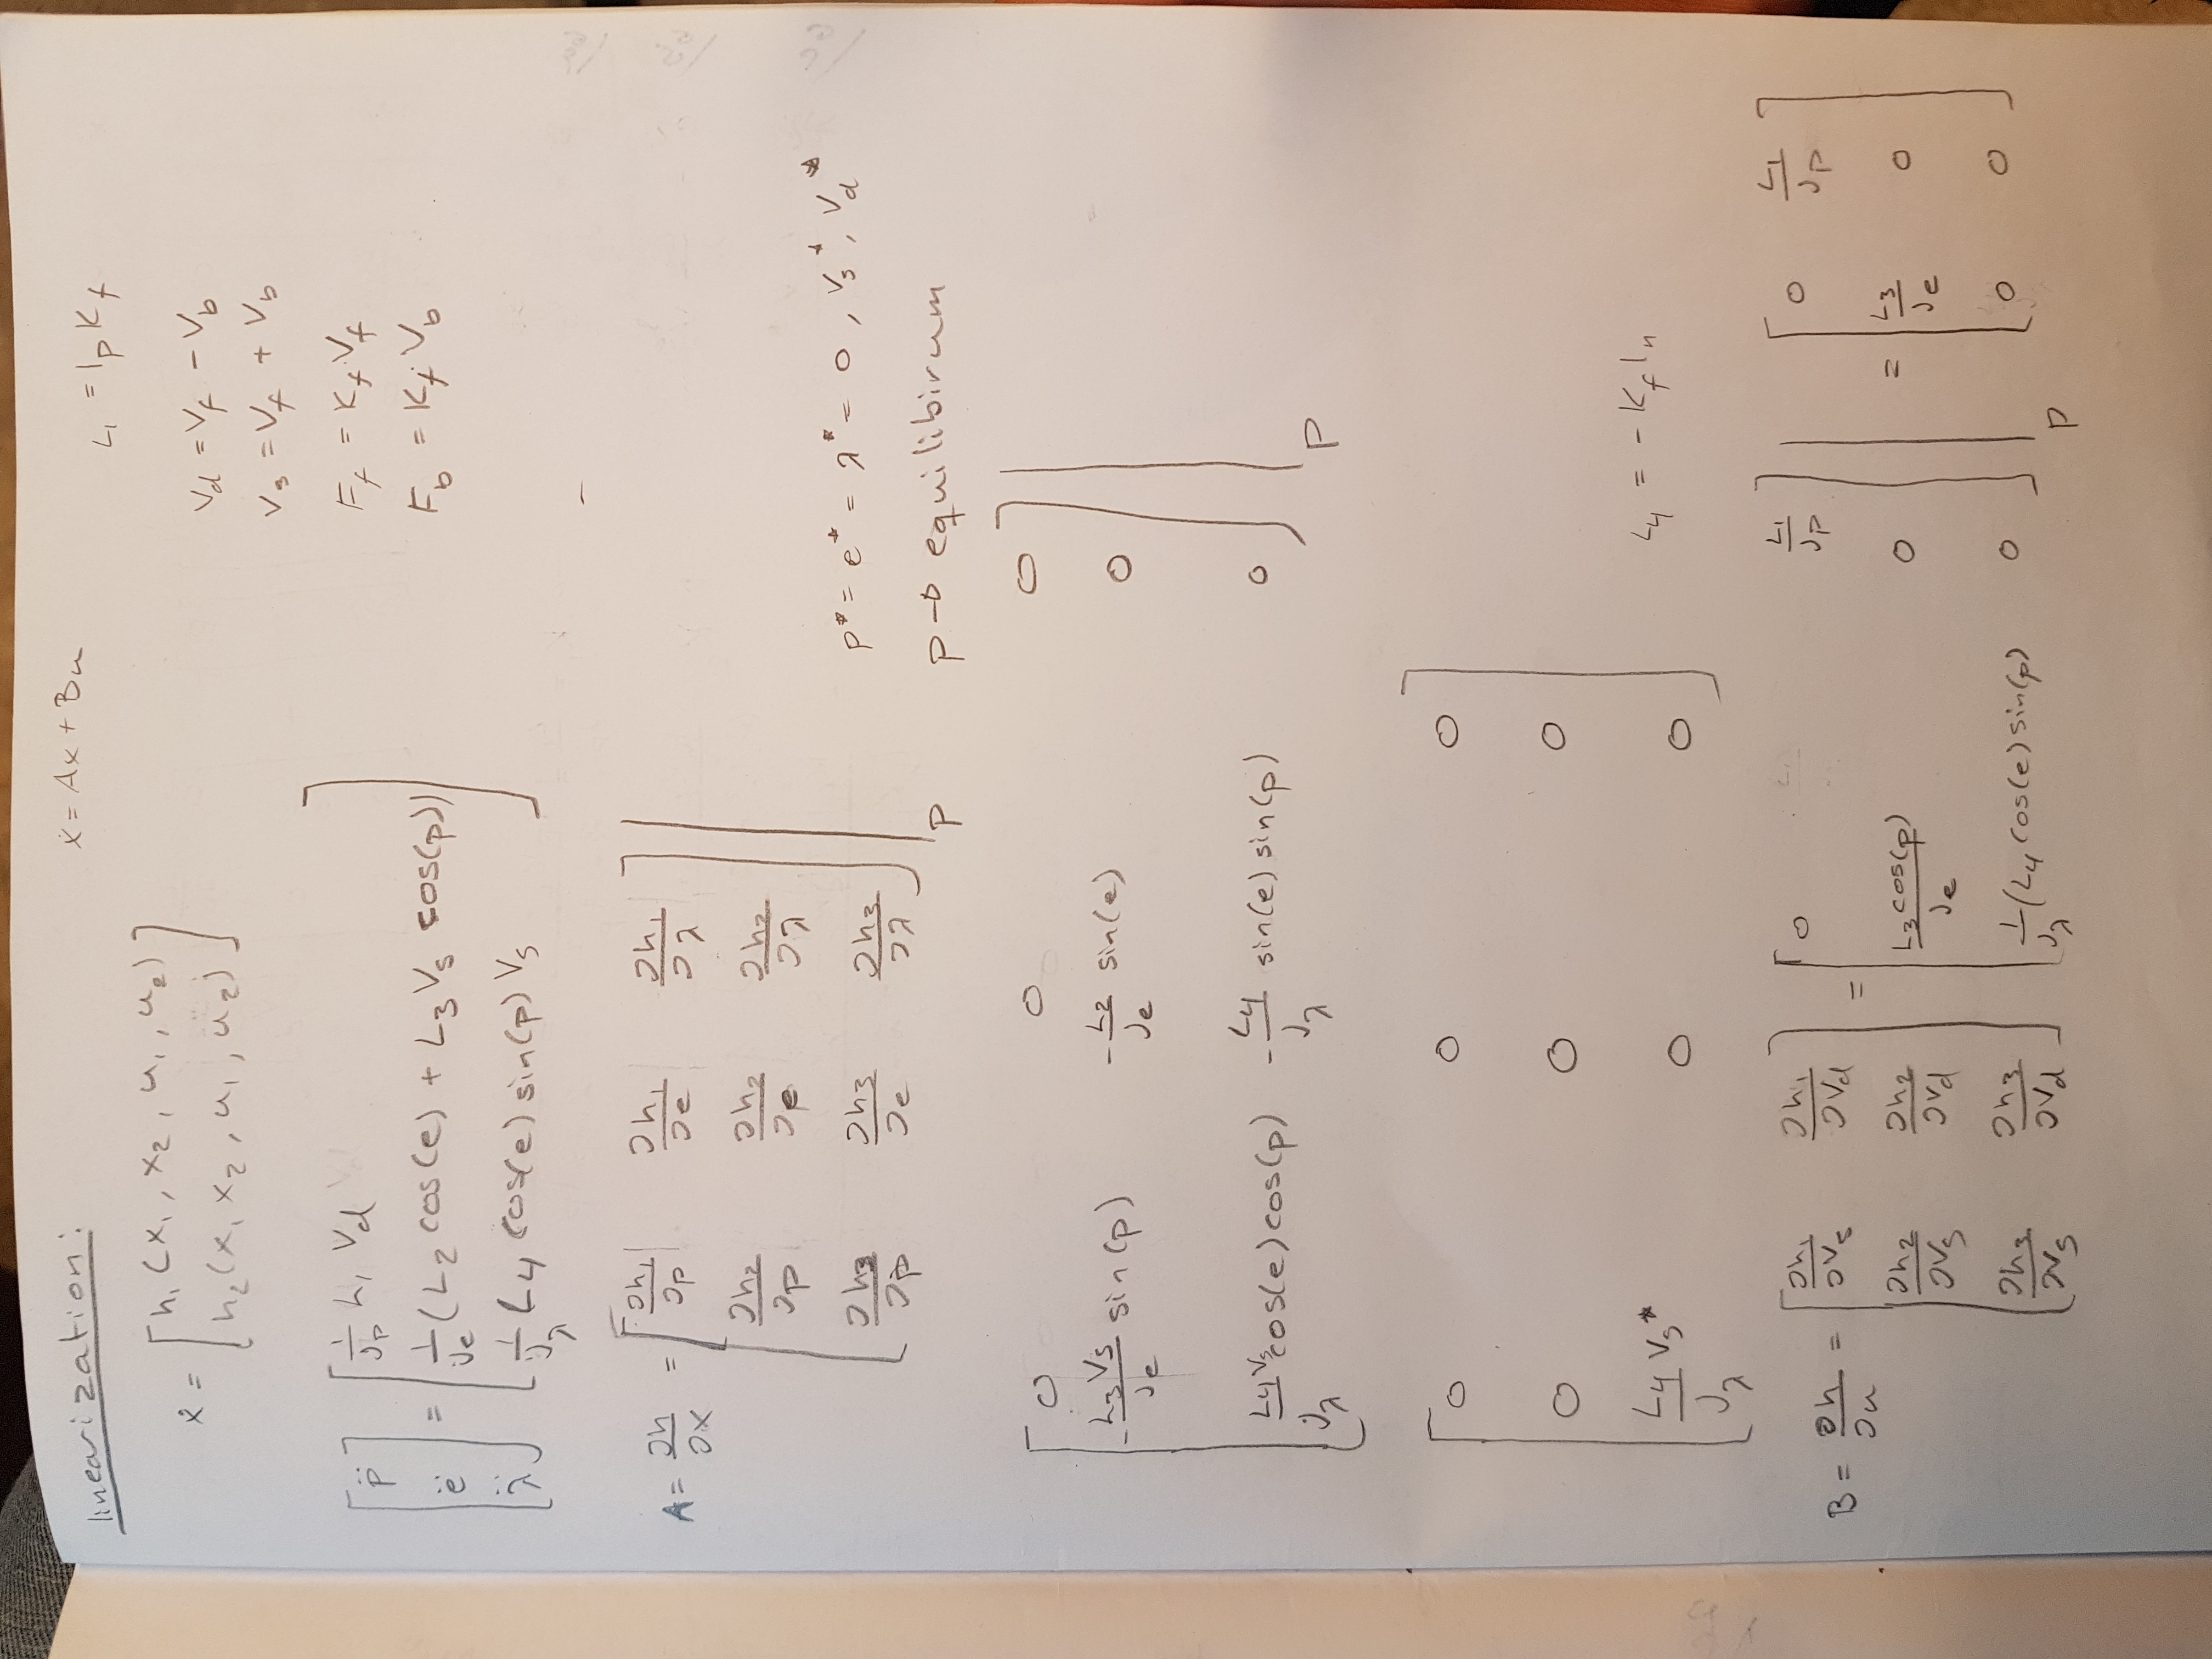 linearization:
ẋ = Ax + Bu
L₁ = lₚ K_f
ẋ = [h₁(x₁, x₂, u₁, u₂)
h₂(x₁ x₂, u₁, u₂)]
V_d = V_f - V_b
V_s = V_f + V_b
F_f = K_f V_f
F_b = K_f V_b
[p̈ = [1/Jₚ L₁ V_d
ë 1/Jₑ (L₂ cos(e) + L₃ V_s cos(p))
λ̈] 1/J_λ L₄ cos(e) sin(p) V_s]
A = ∂h/∂x = [∂h₁/∂p ∂h₁/∂e ∂h₁/∂λ
∂h₂/∂p ∂h₂/∂e ∂h₂/∂λ
∂h₃/∂p ∂h₃/∂e ∂h₃/∂λ] |p
p* = e* = λ* = 0, V_s*, V_d*
p → equilibirum
[0 0 0
-L₃V_s/Jₑ sin(p) -L₂/Jₑ sin(e) 0
L₄V_s/J_λ cos(e) cos(p) -L₄/J_λ sin(e) sin(p) 0] |p
[0 0 0
0 0 0
L₄/J_λ V_s* 0 0]
L₄ = -K_f lₕ
B = ∂h/∂u = [∂h₁/∂V_s ∂h₁/∂V_d = [0 L₁/Jₚ = [0 L₁/Jₚ
∂h₂/∂V_s ∂h₂/∂V_d L₃cos(p)/Jₑ 0 L₃/Jₑ 0
∂h₃/∂V_s ∂h₃/∂V_d] 1/J_λ (L₄ cos(e) sin(p) 0] |p 0 0]